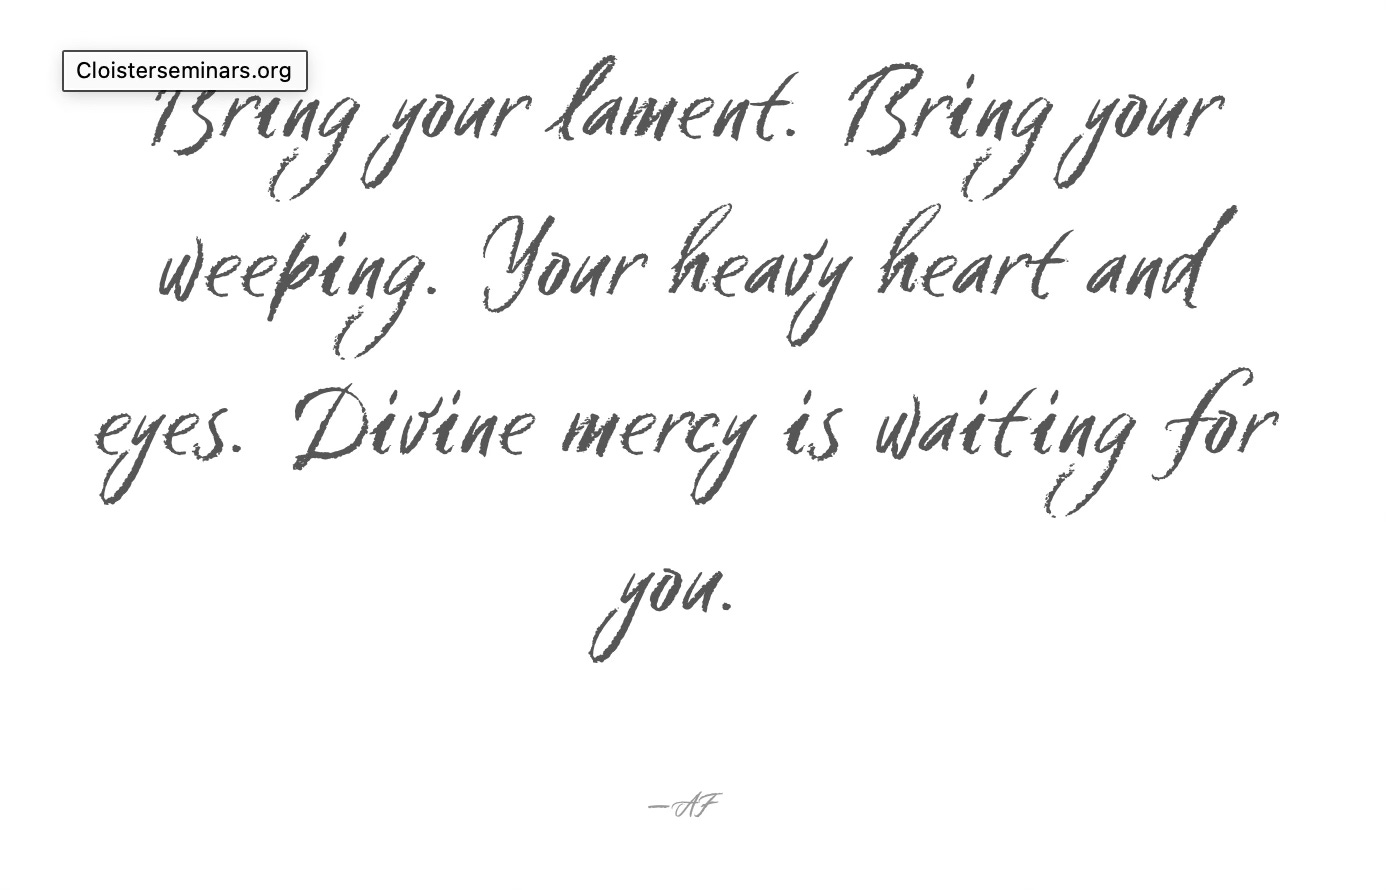 Cloisterseminars.org
Bring your lament. Bring your
weeping. Your heavy heart and
eyes. Divine mercy is waiting for
you.
—AF